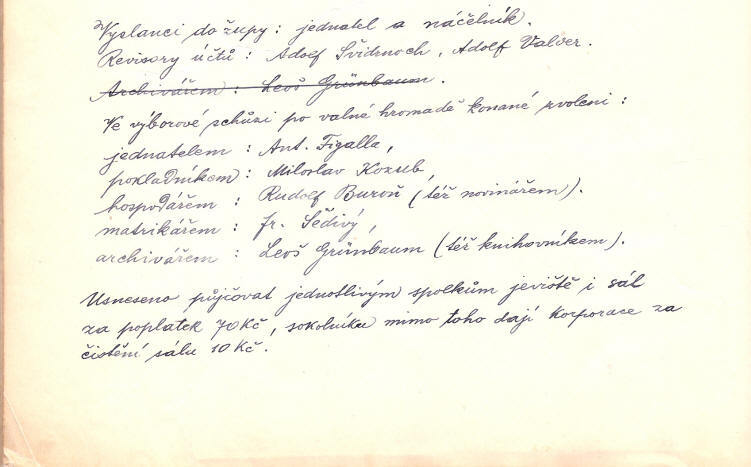 Vyslanci do župy: jednatel a náčelník.
Revisory účtů: Adolf Švidrnoch, Adolf Valver.
Archivářem: Leoš Grünbaum.
Ve výborové schůzi po valné hromadě konané zvoleni:
jednatelem: Ant. Figalla,
pokladníkem: Miloslav Kozub,
hospodářem: Rudolf Buroň (též novinářem).
matrikářem: Fr. Šedivý,
archivářem: Leoš Grünbaum (též knihovníkem).
Usneseno půjčovat jednotlivým spolkům jeviště i sál
za poplatek 70 Kč, sokolníku mimo toho dají korporace za
čistění sálu 10 Kč.